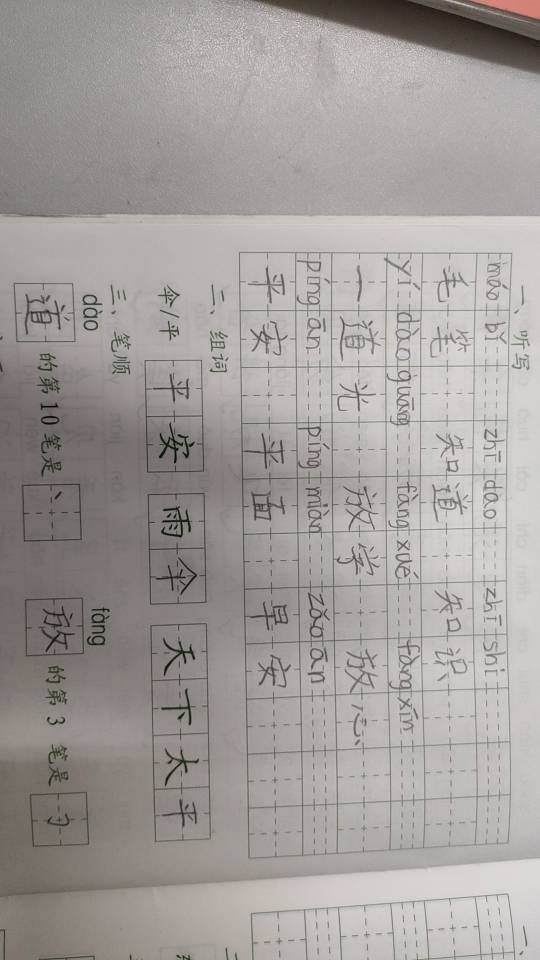 一、听写
máo bǐ zhī dào zhī shi
毛笔 知道 知识
yí dào guāng fàng xué fàng xīn
一道光 放学 放心
píng ān píng miàn zǎo ān
平安 平面 早安
二、组词
伞/平 平安 雨伞 天下太平
三、笔顺
dào fàng
道 的第10笔是 丶 放 的第3笔是 𠃌